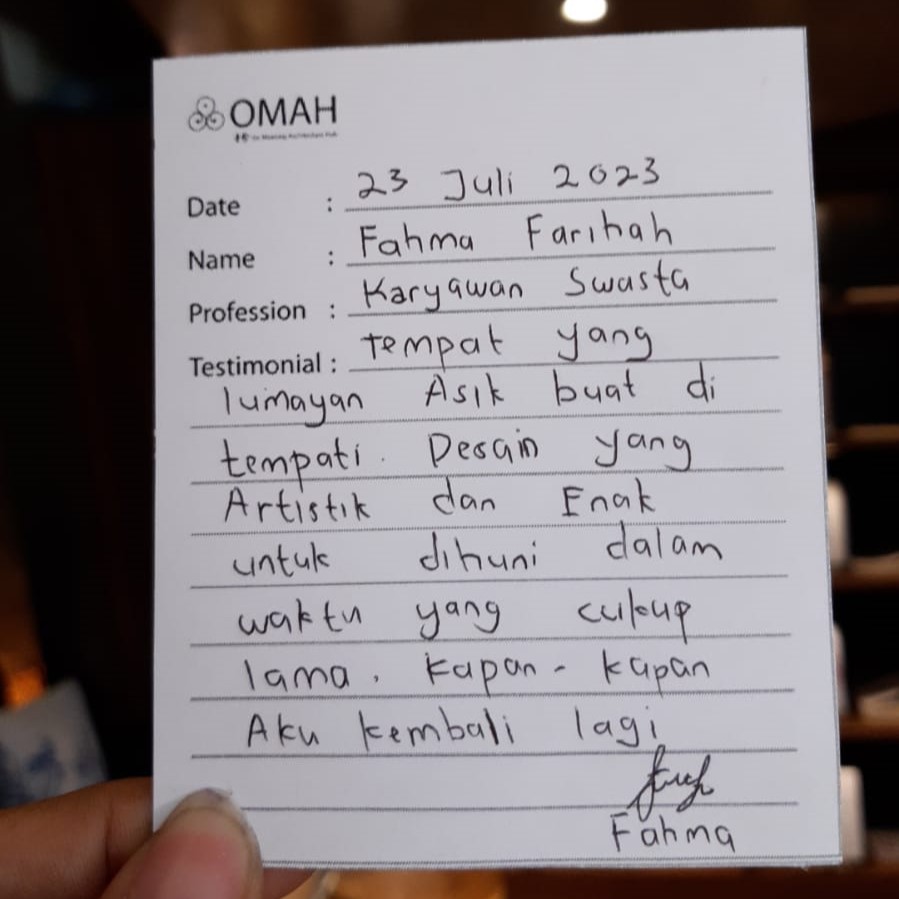 OMAH
Date : 23 Juli 2023
Name : Fahma Farihah
Profession : Karyawan Swasta
Testimonial : Tempat yang
lumayan Asik buat di
tempati. Desain yang
Artistik dan Enak
untuk dihuni dalam
waktu yang cukup
lama. Kapan-kapan
Aku kembali lagi
Fahma